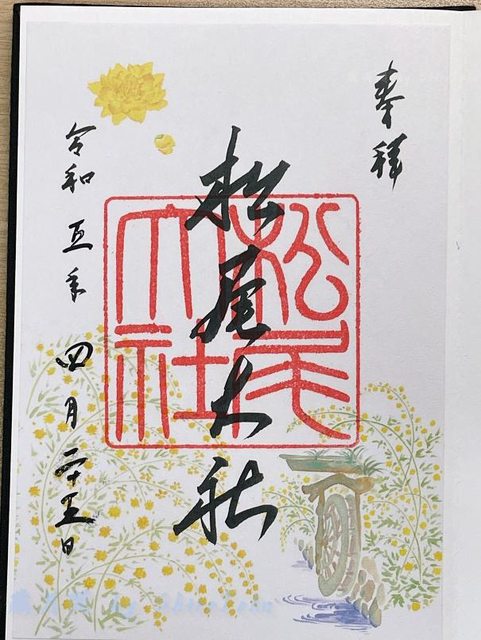 奉拝
松尾大社
松尾大社
令和五年四月二十五日